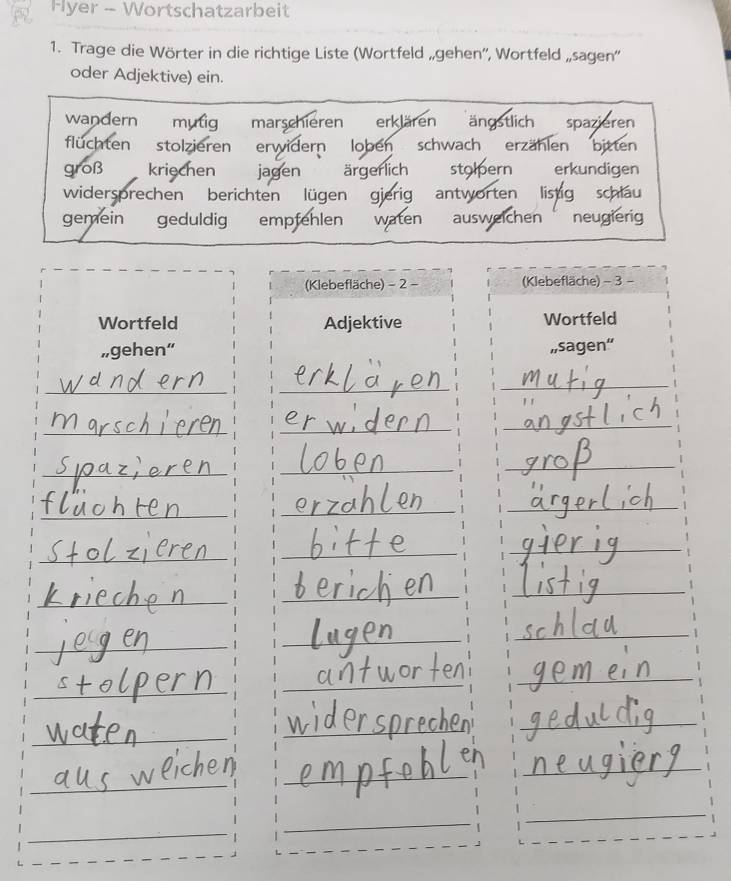 Flyer – Wortschatzarbeit
1. Trage die Wörter in die richtige Liste (Wortfeld „gehen", Wortfeld „sagen"
oder Adjektive) ein.
wandern mutig marschieren erklären ängstlich spazieren
flüchten stolzieren erwidern loben schwach erzählen bitten
groß kriechen jagen ärgerlich stolpern erkundigen
widersprechen berichten lügen gierig antworten listig schlau
gemein geduldig empfehlen waten ausweichen neugierig
(Klebefläche) – 2 – (Klebefläche) – 3 –
Wortfeld Adjektive Wortfeld
„gehen" „sagen"
wandern erklären mutig
marschieren erwidern ängstlich
spazieren loben groß
flüchten erzählen ärgerlich
stolzieren bitte gierig
kriechen berichen listig
jegen lugen schlau
stolpern antworten gemein
waten widersprechen geduldig
ausweichen empfehlen neugierg